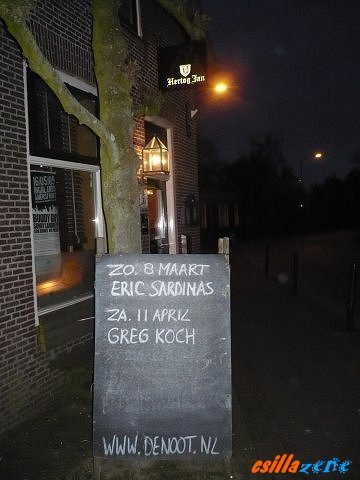 Hertog Jan
ZO. 8 MAART
ERIC SARDINAS
ZA. 11 APRIL
GREG KOCH
WWW.DENOOT.NL
csillazene